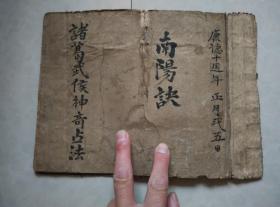 康德十週年 正月弍五日
南陽訣
諸葛武侯神奇占法